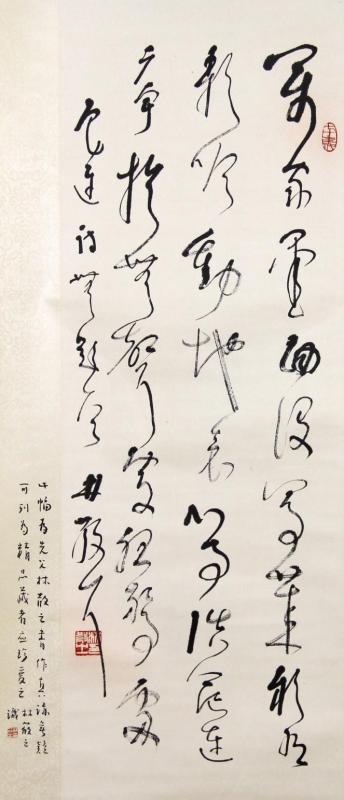 萬家墨面沒蒿萊敢有
歌吟動地哀心事浩茫連
廣宇於無聲處聽驚雷
魯迅詩無題 林散耳
此幅為先父林散之書作真跡無疑
可列為精品藏者珍愛之
林筱之
識